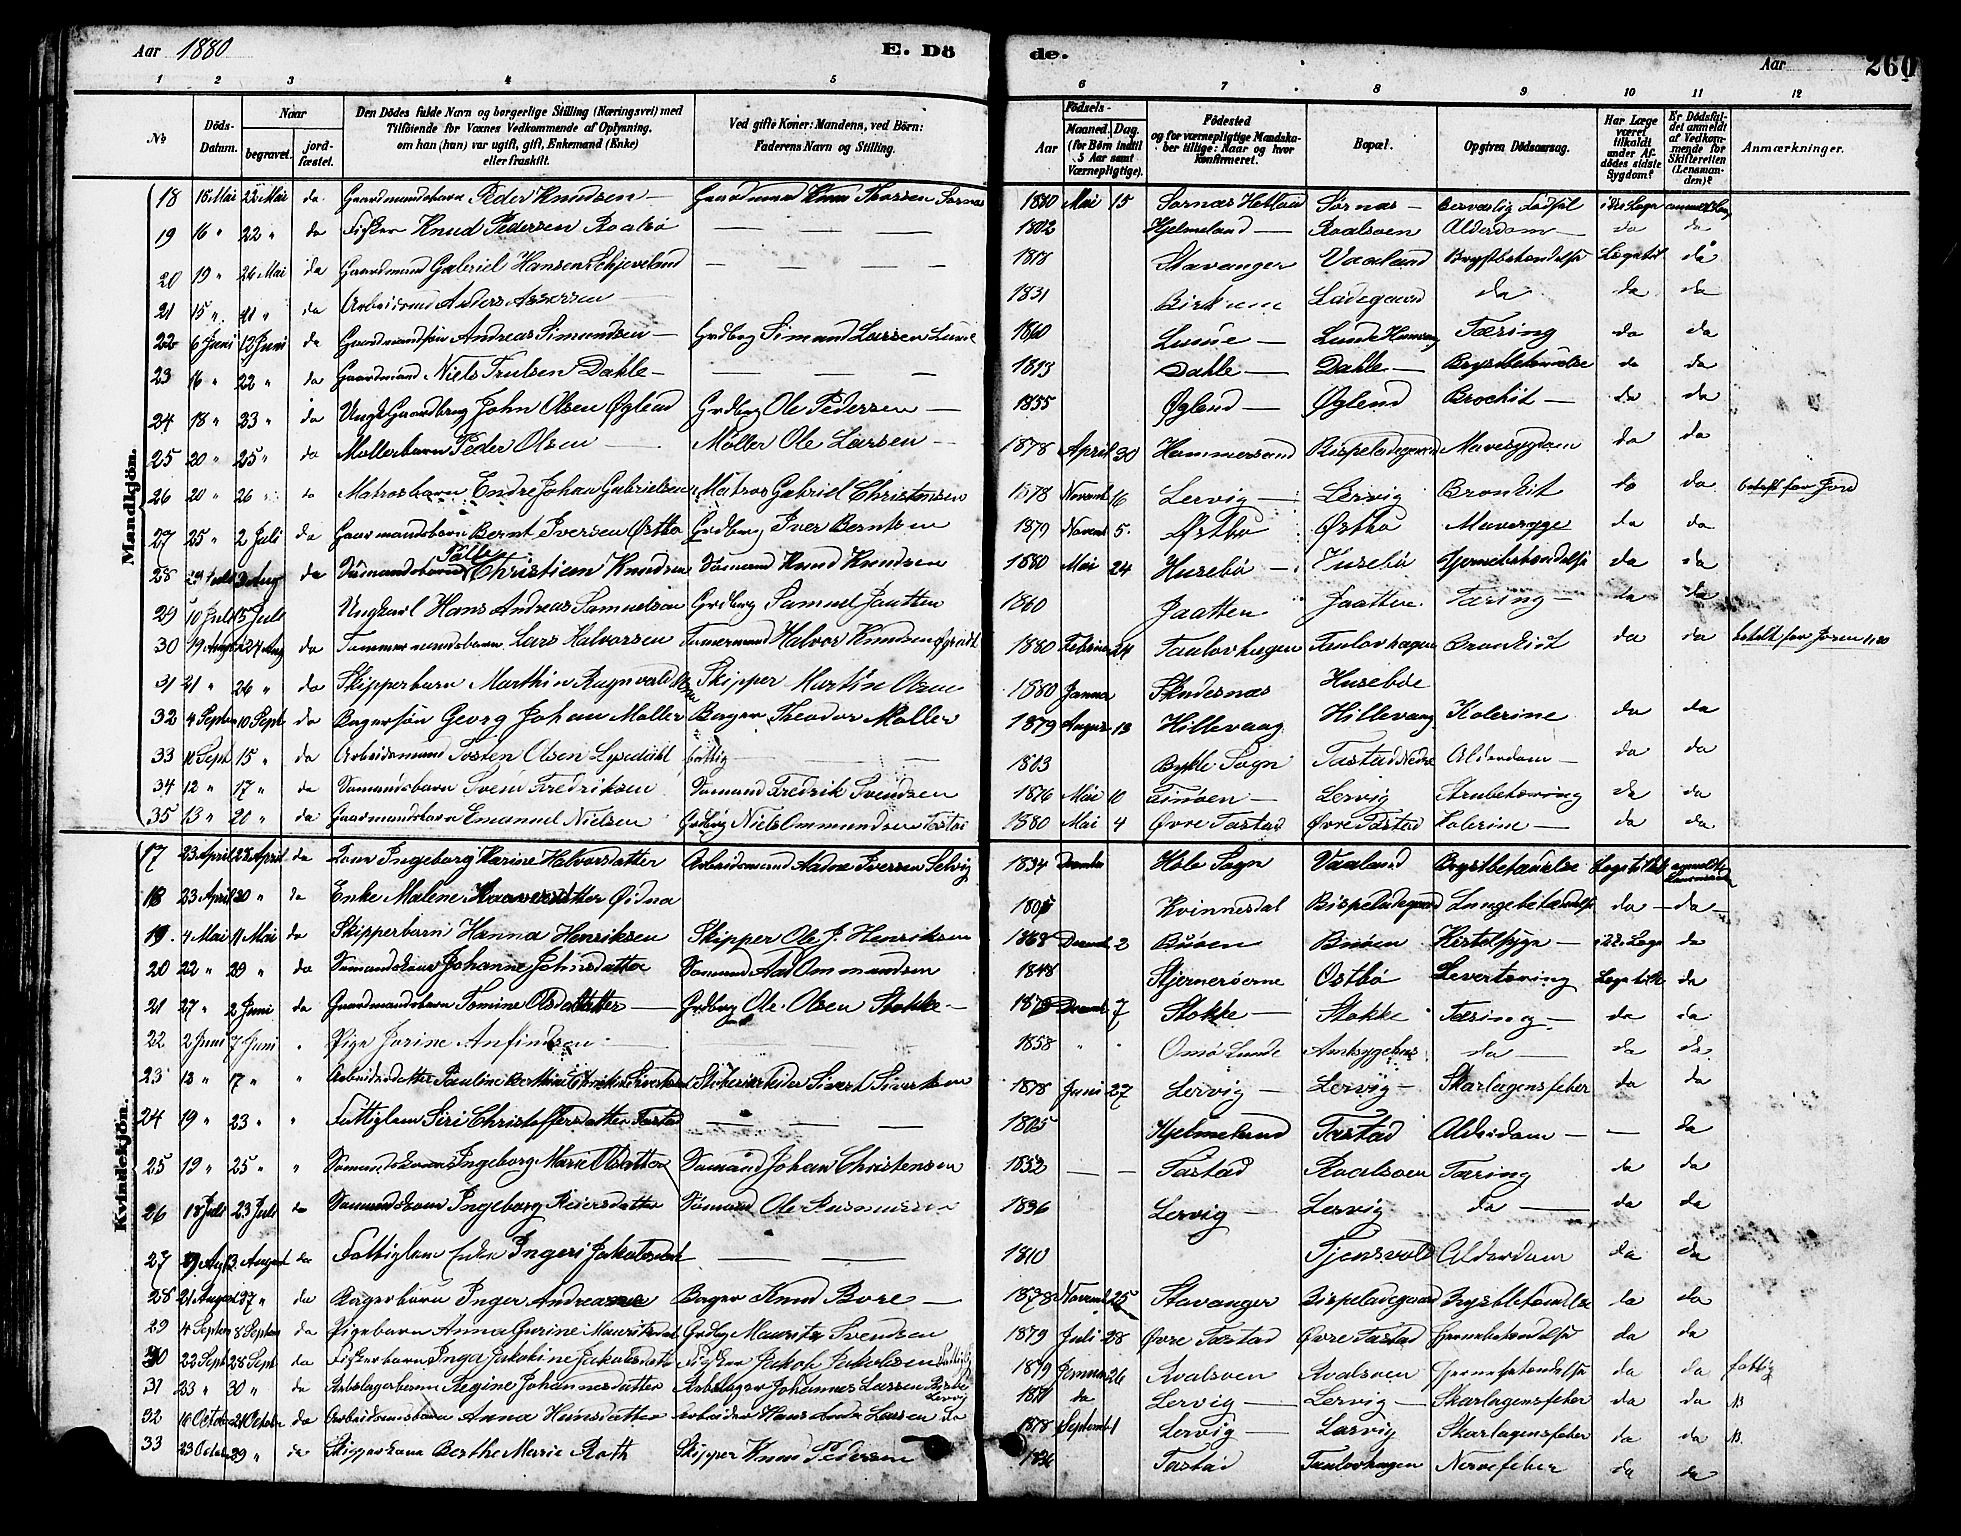 Aar 1880 E. Döde. Aar 260
1 2 3 4 5 6 7 8 9 10 11 12
No. Döds-Datum. Naar begravet. jordfæstet. Den Dödes fulde Navn og borgerlige Stilling (Næringsvei) med Tilföiende for Voxnes Vedkommende af Oplysning, om han (hun) var ugift, gift, Enkemand (Enke) eller fraskilt. Ved gifte Koner: Mandens, ved Börn: Faderens Navn og Stilling. Födsels- Aar Maaned. Dag. (for Börn indtil 5 Aar samt Værnepligtige). Födested og for værnepligtige Mandskaber tillige: Naar og hvor konfirmeret. Bopæl. Opgiven Dödsaarsag. Har Læge været tilkaldt under Afdödes sidste Sygdom? Er Dödsfaldet anmeldt af Vedkommende for Skifteretten (Lensmanden)? Anmærkninger.
Mandkjön.
18 15 Mai 22 Mai da Gaardmandsbarn Peder Knudsen — Gaardmand Knud Thorsen Sørnæs 1880 Mai 15 Sørnæs Hetland Sørnæs —
19 16 " 22 " da Fisker Knud Pedersen Roalsø — — — 1802 Hjelmeland — Roalsøen Alderdom — da da
20 19 " 26 Mai da Gaardmand Gabriel Hansen Skjeveland — — — 1818 Stavanger Vaaland Brystbetændelse da
21 15 " 21 " da Arbeidsmand Anders Assersen — — — 1831 Ladegaard da da da
22 6 Juni 12 Juni da Gaardmandsøn Andreas Simundsen — Grdbrg Simund Larsen Lunde 1860 Lunde — Lunde Tæring da da
23 16 " 22 " da Gaardmand Niels Trulsen Dahle — — — — 1813 Dahle — Dahle — Brystbetændelse da da
24 18 " 23 " da John Olsen Øglend Grdbrg Ole Pedersen — 1855 Øglend — Øglend Brochit — da da
25 20 " 25 " da Møllerbarn Peder Olsen — Møller Ole Larsen — 1878 April 30 Hammersand Bispeladegaard Mavesygdom da da
26 20 " 26 " da Matrosbarn Endre Johan Gabrielsen Matros Gabriel Christensen 1878 Novemb 16 Lervig — Lervig Bronkit da da betalt for Jord
27 25 " 2 Juli da Gaarmandsbarn Bernt Iversen Østbø Grdbrg Iver Berntsen 1879 Novemb 5. Østbø Østbø Mavesyge da da
28 29 Juli da Sømandsbarn Christian Knudsen Sømand Knud Knudsen 1880 Mai 24 Husebø — Husebø Hjernebetændelse da da
29 10 Juli 15 Juli Ungkarl Hans Andreas Samuelsen Grdbrg Samuel Jaatten 1860 Jaatten Jaatten Tæring — da da
30 19 Aug 24 Aug da Tømmermandsbarn Lars Halvorsen Tømmermand Halvor Knudsen 1880 Februar 24 Faulovhagen Faulovhagen Bronkit da da betalt for Jorden
31 21 " 26 " da Skipperbarn Marthin Ragnvald Skipper Martin Olsen 1880 Januar Skudesnæs Husebøe
32 4 Septem 10 Sept da Bagersøn Georg Johan Møller Bager Theodor Møller 1879 August 13 Hillevaag Hillevaag Kolerine da da
33 10 Sept 15 " da Arbeidsmand Torsten Olsen Lysedahl fattig — 1803 Bykle Sogn Tastad Nedre Alderdom — da da
34 12 " 17 " da Sømandsbarn Svend Fredriksen Sømand Fredrik Svendsen 1876 Mai 10 Finøen — Lervig Strubetæring da da
35 13 " 20 " da Gaarmandsbarn Emanuel Nielsen Grdbrg Niels Ommundsen Tastad 1880 Mai 4 Øvre Tastad Øvre Tastad Kolerine — da da
Kvindekjön.
17 23 April 28 April da Kone Ingeborg Karine Halvorsdatter Arbeidsmand Aadne Iversen Selvig 1834 Decembr Høle Sogn Vaaland Brystbetændelse
18 23 April 30 " da Enke Malene Haaversdatter Ødna 1805 Kvinnesdal Bispeladegaard Lungebetændelse da — da —
19. 4 Mai 11 Mai da Skipperbarn Hanna Henriksen Skipper Ole J. Henriksen 1868 Decemb 2 Buøen Buøen Kirtelsyge — ikke Læge da
20 22 " 29 " da Sømandskone Johanne Johnsdatter Sømand Aad Ommundsen 1848 Stjernerøerne Ostbø Levertæring Læge tilk da
21 27 " 2 Juni da Gaardmandsbarn Tomine Olsdatter — Grdbrg Ole Olsen Stokke — 1879 Decemb 7 Stokke — Stokke Tæring — da da
22 2 Juni 7 Juni " Pige Jorine Anfindsen — — 1858 " " Omø Lunde Amtsygehus da — da da
23 13 " 17 " " Arbeidsdatter Pauline Sivert Sivertsen 1878 Juni 27 Lervig — Lervig — Skarlagensfeber da da
24 19 " 23 " " Fattiglem Siri Christoffersdatter Tastad — — — 1805 Hjelmeland Tastad Alderdom — — da
25 19 " 25 " " Sømandskone Ingeborg Marie Olsdatter Sømand Johan Christensen 1852 — — Tastad Roalsøen Tæring da da
26 18 Juli 23 Juli da Sømandskone Ingeborg Reiersdatter Sømand Ole Rasmussen 1836 Lervig — Lervig da — da da
27 9 Aug 13 August da Fattiglem Enke Ingeri Jakobsdatt — — 1810 Tjensvold Alderdom da da
28 21 August 27 " da Bagerbarn Inger Andreasen Bager Knud Bore — 1878 Novemb 25 Stavanger Bispeladegaard Brystbetændelse da da
29 4 Septem 8 Septem da Pigebarn Anna Gurine Mauritsdat Grdbrg Mauritz Svendsen 1879 Juli 28 Øvre Tastad Øvre Tastad Hjernebetændelse da da
30 22 Sept 28 Sept da Fiskerbarn Inga Jakobine Jakobsdatter Fisker Jakob Jakobsen 1879 Januar 26 Roalsøen Roalsøen Hjernebetændelse da da fattig
31 23 " 30 " da Regine Johannesdatter Johannes Larsen Lervig da Lervig — Lervig — Skarlagensfeber da da
32 16 Octob 21 October da Arbeidsmandsbarn Anna Hansdatter Arbeider Hans Larsen 1878 Septemb 1 Lervig — Lervig Skarlagensfeber da da
33 23 Octob 29 " da Skipperkone Berthe Marie Roth Skipper Knud Pedersen 1836 Tastad Faulovhagen Nervefeber da da